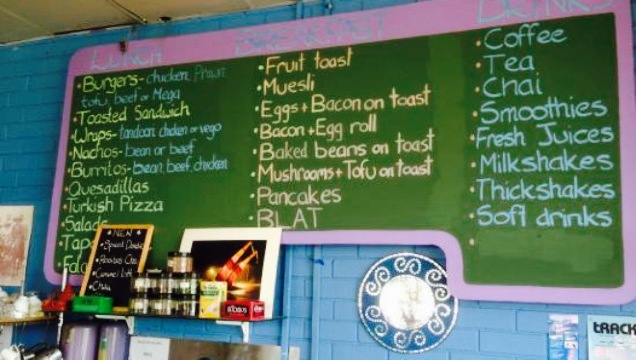 LUNCH
• Burgers - chicken, Prawn
tofu, beef or Mega
• Toasted Sandwich
• Wraps - tandoori chicken or vego
• Nachos - bean or beef
• Burritos - bean, beef, chicken
• Quesadillas
• Turkish Pizza
• Salads
BREAKFAST
• Fruit toast
• Muesli
• Eggs + Bacon on toast
• Bacon + Egg roll
• Baked beans on toast
• Mushrooms + Tofu on toast
• Pancakes
• BLAT
DRINKS
• Coffee
• Tea
• Chai
• Smoothies
• Fresh Juices
• Milkshakes
• Thickshakes
• Soft drinks
• NEW •